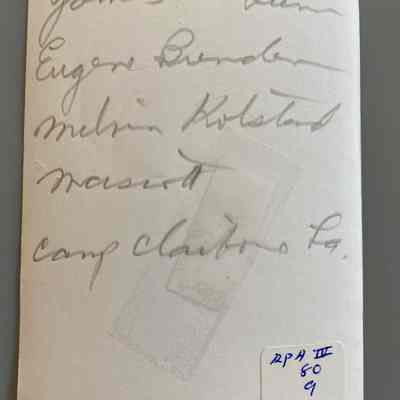 Eugene Brenden
Melvin Kolstad
Mascott
Camp Claiborne La.
RPA III
80
9